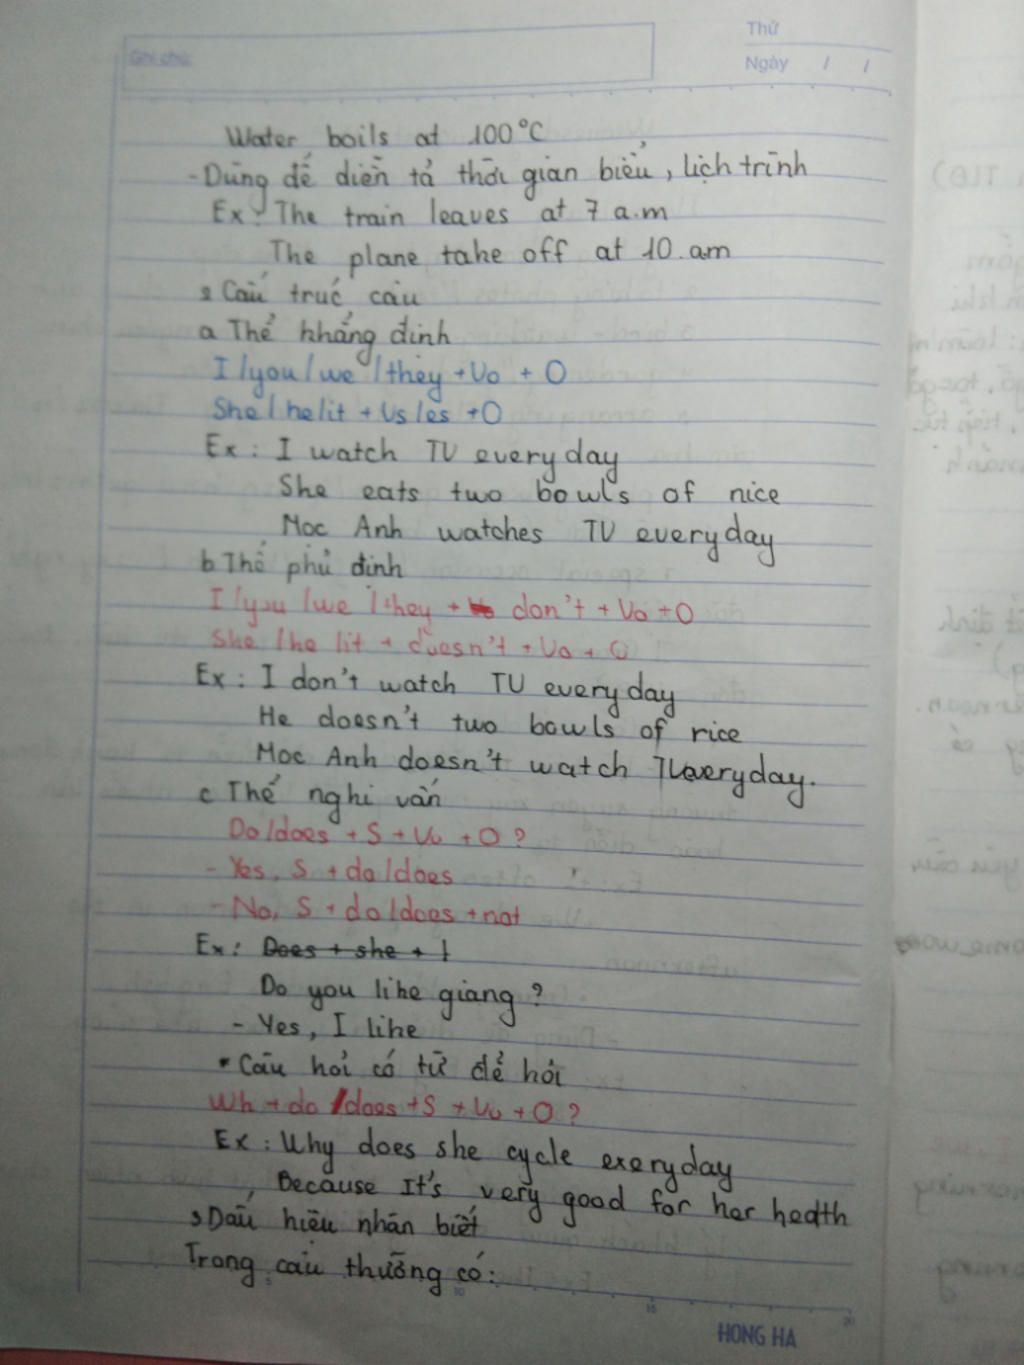 Ghi chú:
Thứ
Ngày / /
Water boils at 100°C
- Dùng để diễn tả thời gian biểu, lịch trình
Ex: The train leaves at 7 a.m
The plane take off at 10.am
2 Cấu trúc câu
a Thể khẳng định
I /you/we /they + Vo + O
She/he/it + Vs/es + O
Ex: I watch TV everyday
She eats two bowls of nice
Moc Anh watches TV everyday
b Thể phủ định
I /you /we /they + don't + Vo + O
She /he /it + doesn't + Vo + O
Ex: I don't watch TV everyday
He doesn't two bowls of rice
Moc Anh doesn't watch TV everyday.
c Thể nghi vấn
Do/does + S + Vo + O ?
- Yes, S + do/does
- No, S + do/does + not
Ex: Does + she + l
Do you like giang ?
- Yes, I like
• Câu hỏi có từ để hỏi
Wh + do /does + S + Vo + O ?
Ex: Why does she cycle exeryday
Because It's very good for her hedth
3 Dấu hiệu nhân biết
Trong câu thường có:
10 15 20
HONG HA